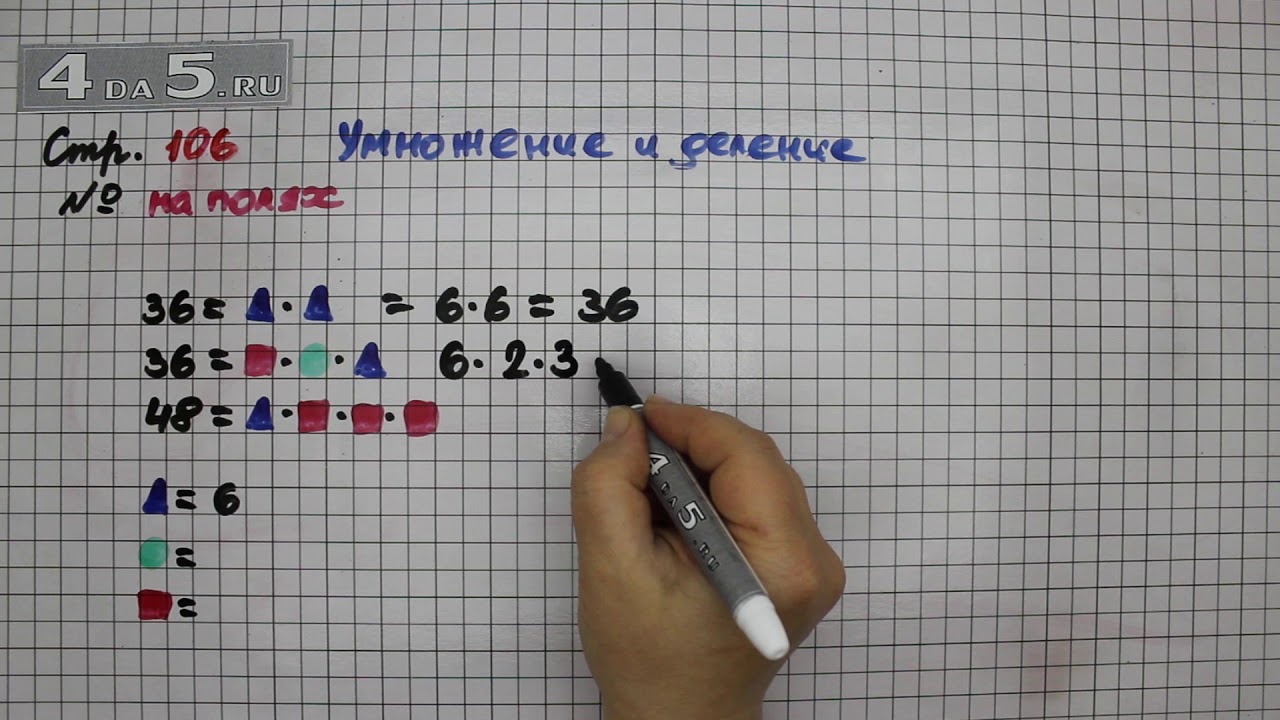 4DA5.RU
Стр. 106 Умножение и деление
№ на полях
36 = ▲ · ▲ = 6 · 6 = 36
36 = ■ · ● · ▲ 6 · 2 · 3
48 = ▲ · ■ · ■ · ■
▲ = 6
● =
■ =
4DA5.RU